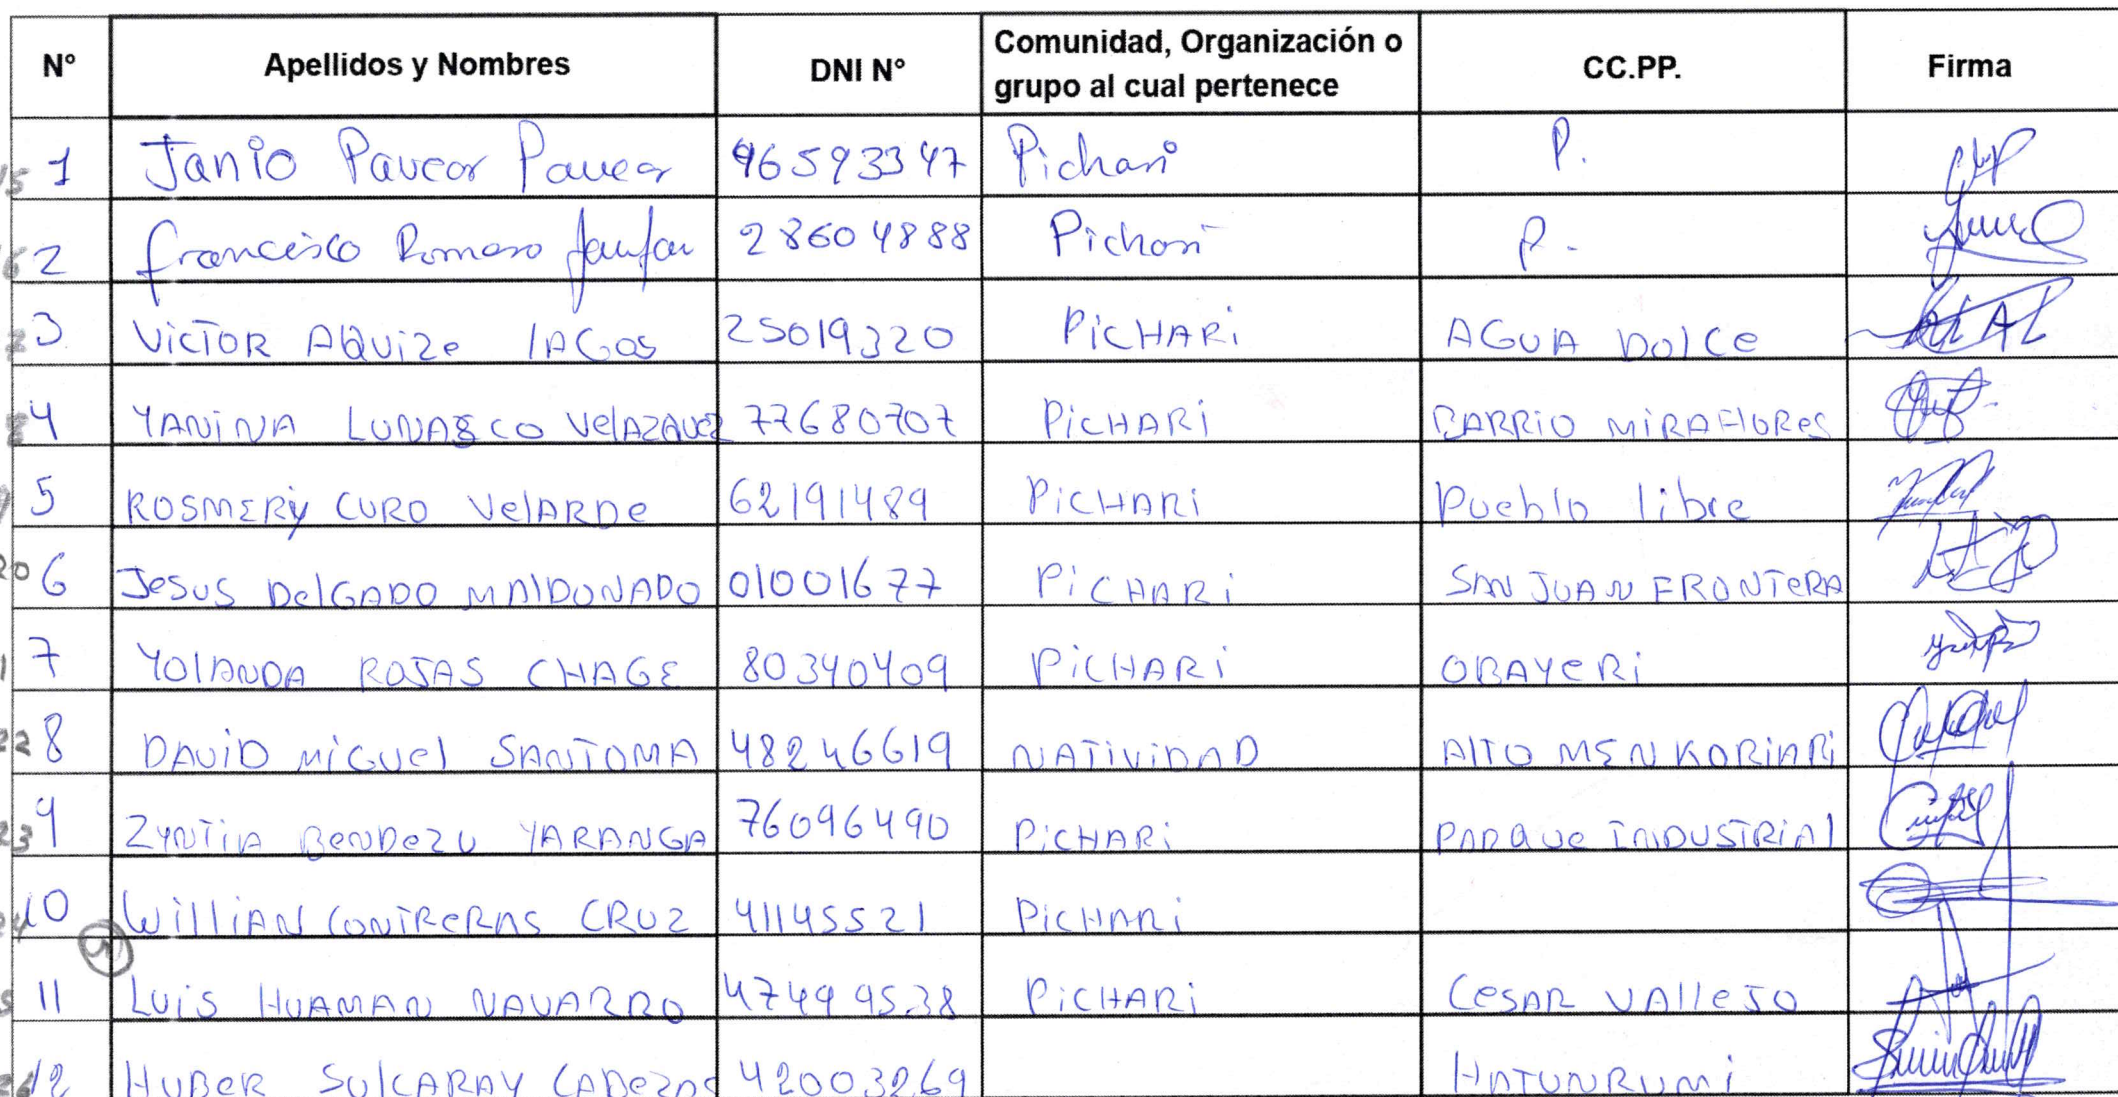 N° Apellidos y Nombres DNI N° Comunidad, Organización o grupo al cual pertenece CC.PP. Firma
1 Janio Paucar Paucar 46593347 Pichari P.
2 Francisco Romero 28604888 Pichari P.
3 VICTOR AQUIZE lAGOS 25019320 PiCHARi AGUA DOlCe
4 YANiNA LUNASCO VelAZQUEZ 77680707 PiCHARi BARRiO MiRAFlORes
5 ROSMERY CURO VelARDe 62191489 PiCHARi Pueblo libre
6 JESUS DelGADO MAlDONADO 01001677 PiCHARi SAN JUAN FRONTERA
7 YOlANDA ROJAS CHAGE 80340409 PiCHARi OBAYeRi
8 DAViD MiGUel SANTOMA 48246619 NATiViDAD AlTO MENKORiARi
9 ZYNTiA BENDEZU YARANGA 76096490 PiCHARi PARQUE INDUSTRiAl
10 WilliAN CONTRERAS CRUZ 41145521 PiCHARi
11 LUiS HUAMAN NAVARRO 47499538 PiCHARi CESAR VAlleJO
12 HUBER SUlCARAY CABEZAS 42003269 HATUNRUMi